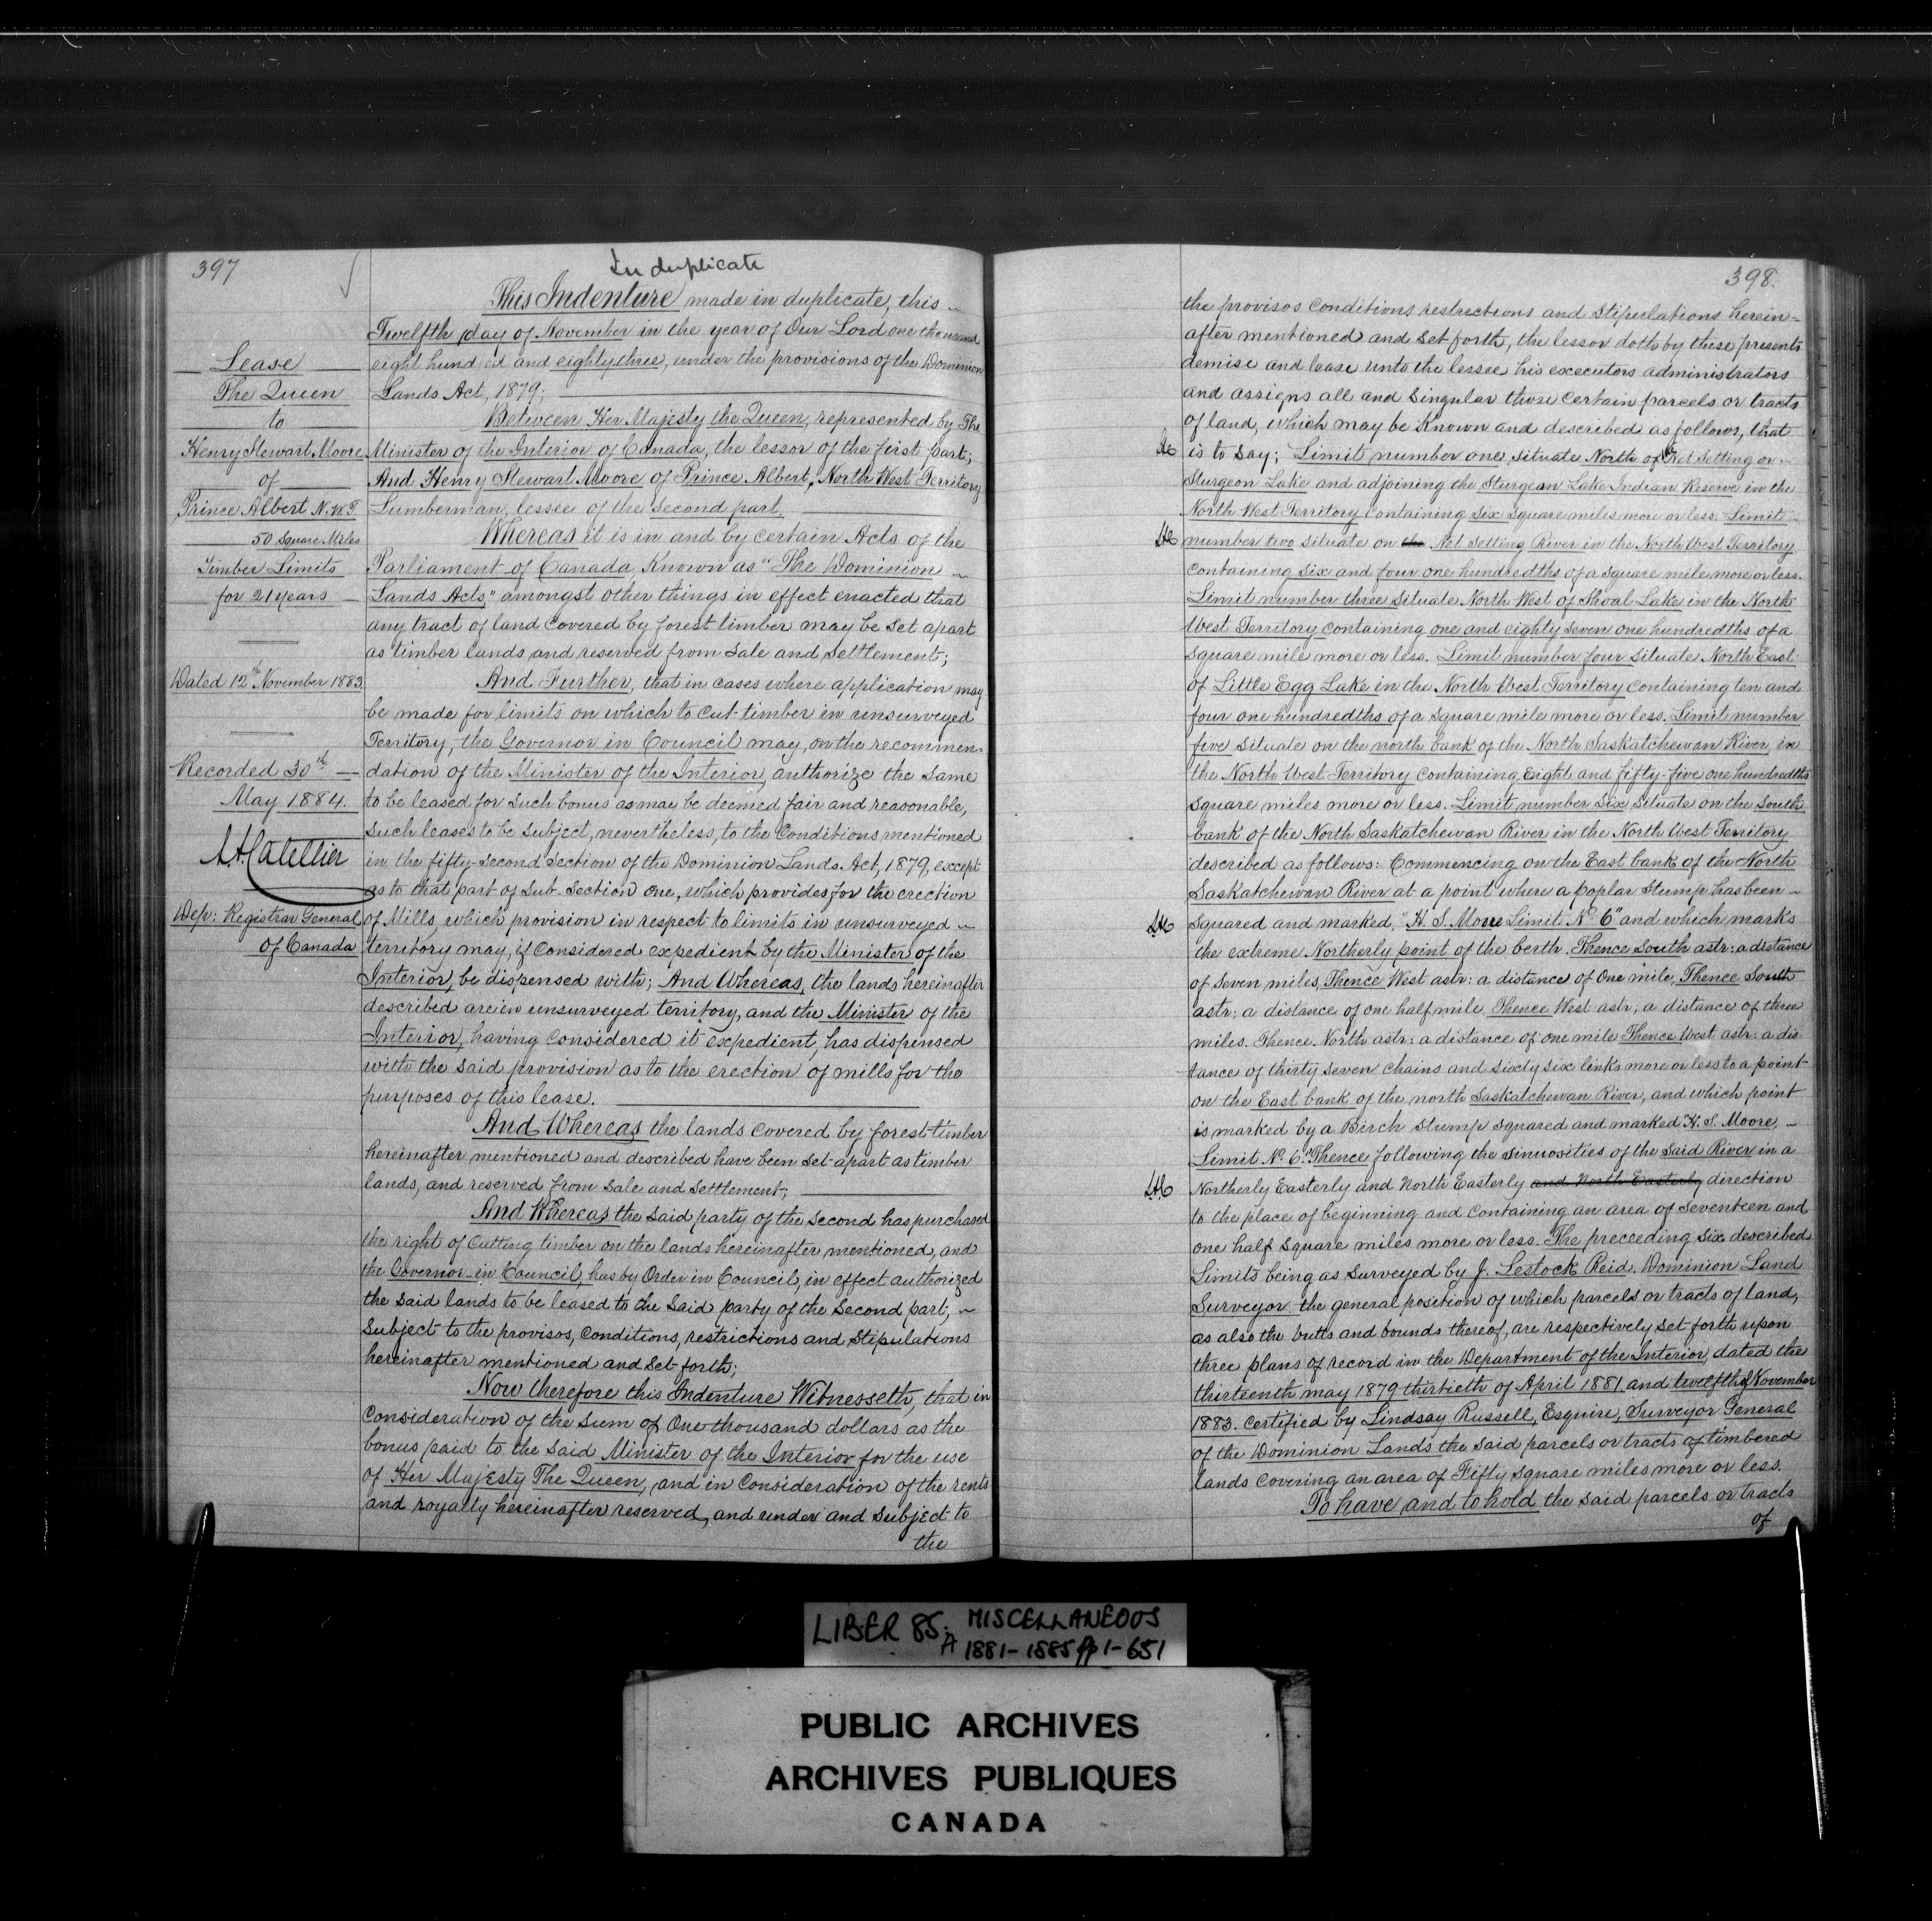 397
In duplicate
Lease
The Queen
to
Henry Stewart Moore
of
Prince Albert N.W.T.
50 Square Miles
Timber Limits
for 21 Years
Dated 12th November 1883.
Recorded 30th
May 1884.
Dep: Registrar General
of Canada
This Indenture made in duplicate, this
Twelfth day of November in the year of Our Lord one thousand
eight hund ed and eighty three, under the provisions of the Dominion
Lands Act, 1879;
Between Her Majesty the Queen, represented by The
Minister of the Interior of Canada, the lessor of the first part;
And Henry Stewart Moore of Prince Albert, North West Territory
Lumberman, lessee of the second part.
Whereas it is in and by certain Acts of the
Parliament of Canada Known as "The Dominion
Lands Acts," amongst other things in effect enacted that
any tract of land covered by forest timber may be set apart
as timber lands and reserved from Sale and Settlement;
And Further, that in cases where application may
be made for limits on which to cut timber in unsurveyed
Territory, the Governor in Council may, on the recommen-
dation of the Minister of the Interior, authorize the same
to be leased for such bonus as may be deemed fair and reasonable,
such leases to be subject, nevertheless, to the Conditions mentioned
in the fifty-second Section of the Dominion Lands Act, 1879, except
as to that part of Sub-Section one, which provides for the erection
of Mills, which provision in respect to limits in unsurveyed
territory may, if considered expedient by the Minister of the
Interior, be dispensed with; And Whereas, the lands hereinafter
described are in unsurveyed territory, and the Minister of the
Interior, having considered it expedient, has dispensed
with the said provision as to the erection of mills for the
purposes of this lease.
And Whereas the lands covered by forest timber
hereinafter mentioned and described have been set apart as timber
lands, and reserved from Sale and Settlement;
And Whereas the said party of the second has purchased
the right of cutting timber on the lands hereinafter mentioned, and
the Governor-in Council, has by Order in Council, in effect authorized
the said lands to be leased to the said party of the second part,
Subject to the provisos, conditions, restrictions and Stipulations
hereinafter mentioned and set-forth;
Now therefore this Indenture Witnesseth, that in
Consideration of the sum of One thousand dollars as the
bonus paid to the said Minister of the Interior for the use
of Her Majesty The Queen, and in consideration of the rents
and royalty hereinafter reserved, and under and subject to
the
398.
the provisos conditions restrictions and Stipulations herein-
after mentioned and set forth, the lessor doth by these presents
demise and lease unto the lessee his executors administrators
and assigns all and singular those certain parcels or tracts
of land, which may be Known and described as follows, that
is to say; Limit number one, situate North of Net Setting or
Sturgeon Lake and adjoining the Sturgeon Lake Indian Reserve in the
North West Territory containing six square miles more or less. Limit
number two situate on the Net Setting River in the North West Territory
containing six and four one hundredths of a square mile more or less.
Limit number three situate North West of Shoal Lake in the North
West Territory containing one and eighty seven one hundredths of a
square mile more or less. Limit number four situate North East
of Little Egg Lake in the North West Territory containing ten and
four one hundredths of a square mile more or less. Limit number
five situate on the north bank of the North Saskatchewan River, in
the North West Territory containing Eight and fifty-five one hundredths
square miles more or less. Limit number six situate on the South
bank of the North Saskatchewan River in the North West Territory
described as follows: Commencing on the East bank of the North
Saskatchewan River at a point where a poplar stump has been
squared and marked, "H. S. Moore Limit No 6" and which marks
the extreme Northerly point of the berth. Thence South astr: a distance
of Seven miles, Thence West astr: a distance of One mile, Thence South
astr: a distance of one half mile Thence West astr, a distance of three
miles. Thence North astr: a distance of one mile Thence West astr: a dis
tance of thirty seven chains and sixty six links more or less to a point
on the East bank of the north Saskatchewan River, and which point
is marked by a Birch stump squared and marked "H. S. Moore,
Limit No 6." Thence following the sinuosities of the said River in a
Northerly Easterly and North Easterly and North Easterly direction
to the place of beginning and containing an area of seventeen and
one half square miles more or less. The preceeding six described
Limits being as surveyed by J. Lestock Reid. Dominion Land
Surveyor the general position of which parcels or tracts of land,
as also the butts and bounds thereof, are respectively set forth upon
three plans of record in the Department of the Interior, dated the
thirteenth may 1879 thirtieth of April 1881 and twelfth of November
1883. certified by Lindsay Russell, Esquire, Surveyor General
of the Dominion Lands the said parcels or tracts of timbered
lands covering an area of Fifty square miles more or less.
To have and to hold the said parcels or tracts
of
LIBER 85. MISCELLANEOUS
A 1881-1885 pp 1-651
PUBLIC ARCHIVES
ARCHIVES PUBLIQUES
CANADA